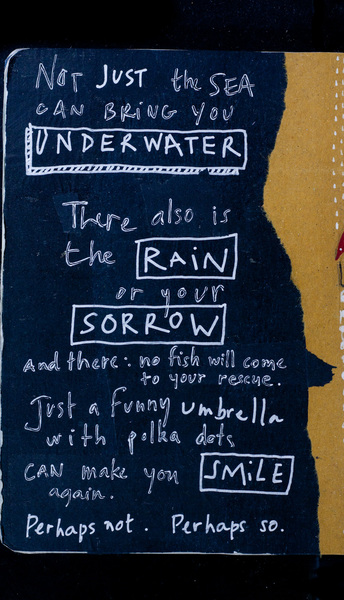 Not JUST the SEA
CAN BRING YOU
UNDERWATER
There also is
the RAiN
or your
SORROW
And there: no fish will come
to your rescue.
Just a funny umbrella
with polka dots
CAN make you SMiLE
again.
Perhaps not. Perhaps so.